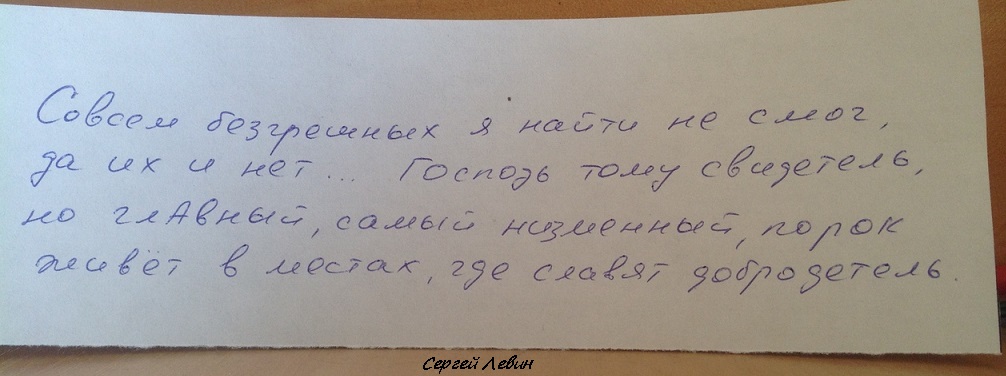 Совсем безгрешных я найти не смог,
да их и нет... Господь тому свидетель,
но глАвный, самый низменный, порок
живёт в местах, где славят добродетель.
Сергей Левин